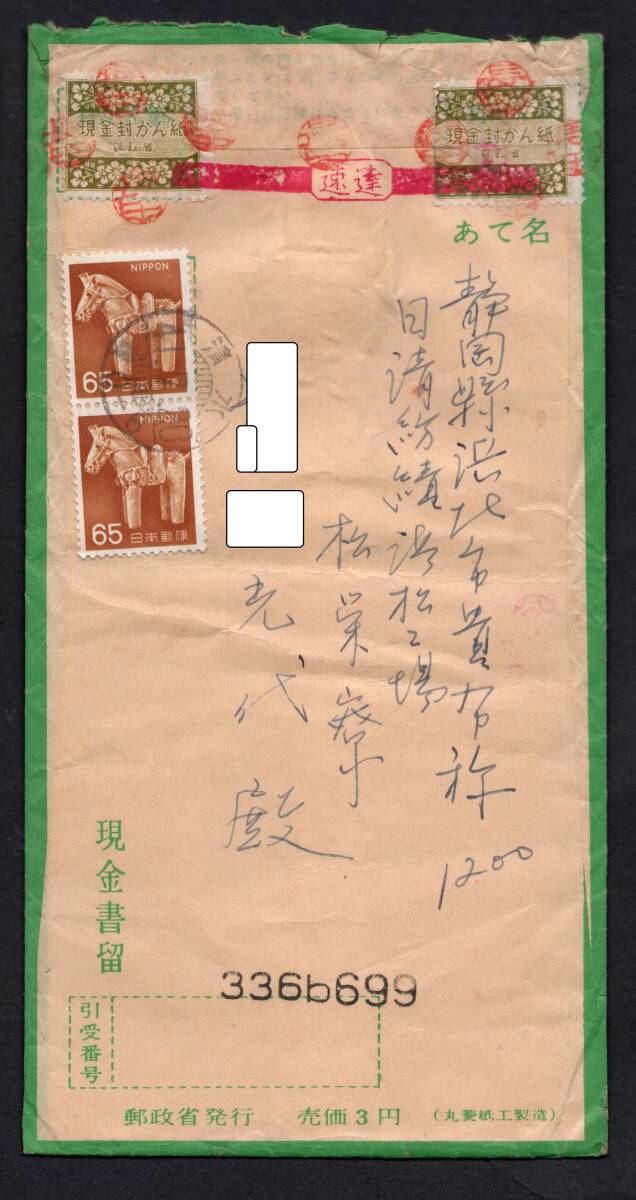 現金封かん紙
郵政省
現金封かん紙
郵政省
速達
あて名
NIPPON
65 日本郵便
NIPPON
65 日本郵便
静岡縣浜北市貴布祢
1200
日清紡績浜松工場
松栄寮
光代殿
現金書留
336b699
引受番号
郵政省発行 売価3円 (丸菱紙工製造)